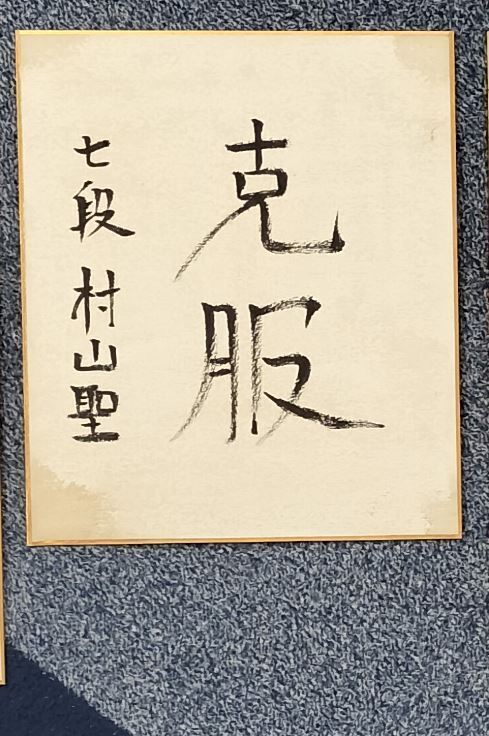 克服
七段 村山聖